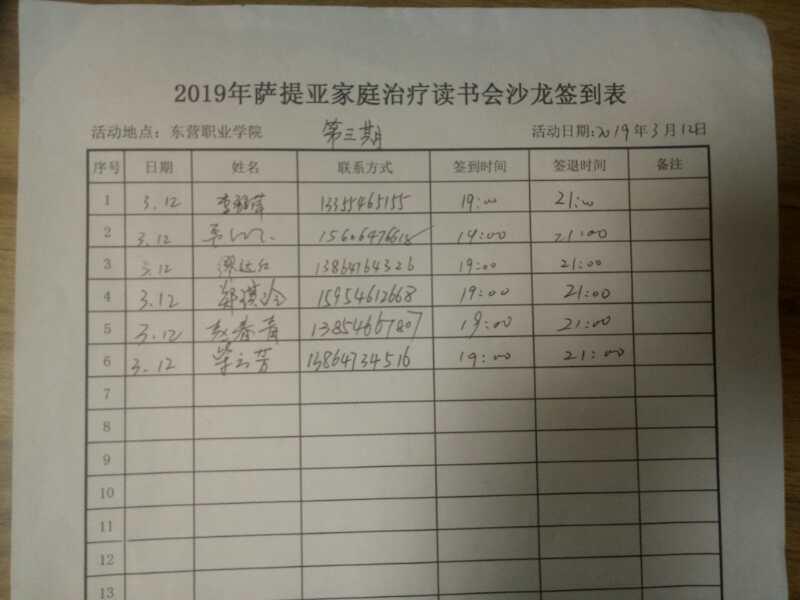 2019年萨提亚家庭治疗读书会沙龙签到表
活动地点：东营职业学院 第三期 活动日期:2019年3月12日
序号 日期 姓名 联系方式 签到时间 签退时间 备注
1 3.12 13355465155 19:00 21:00
2 3.12 19:00 21:00
3 3.12 缪达红 13864764326 19:00 21:00
4 3.12 郑琪冷 15954612668 19:00 21:00
5 3.12 赵春青 13854667807 19:00 21:00
6 3.12 荣云芳 13864734516 19:00 21:00
7
8
9
10
11
12
13